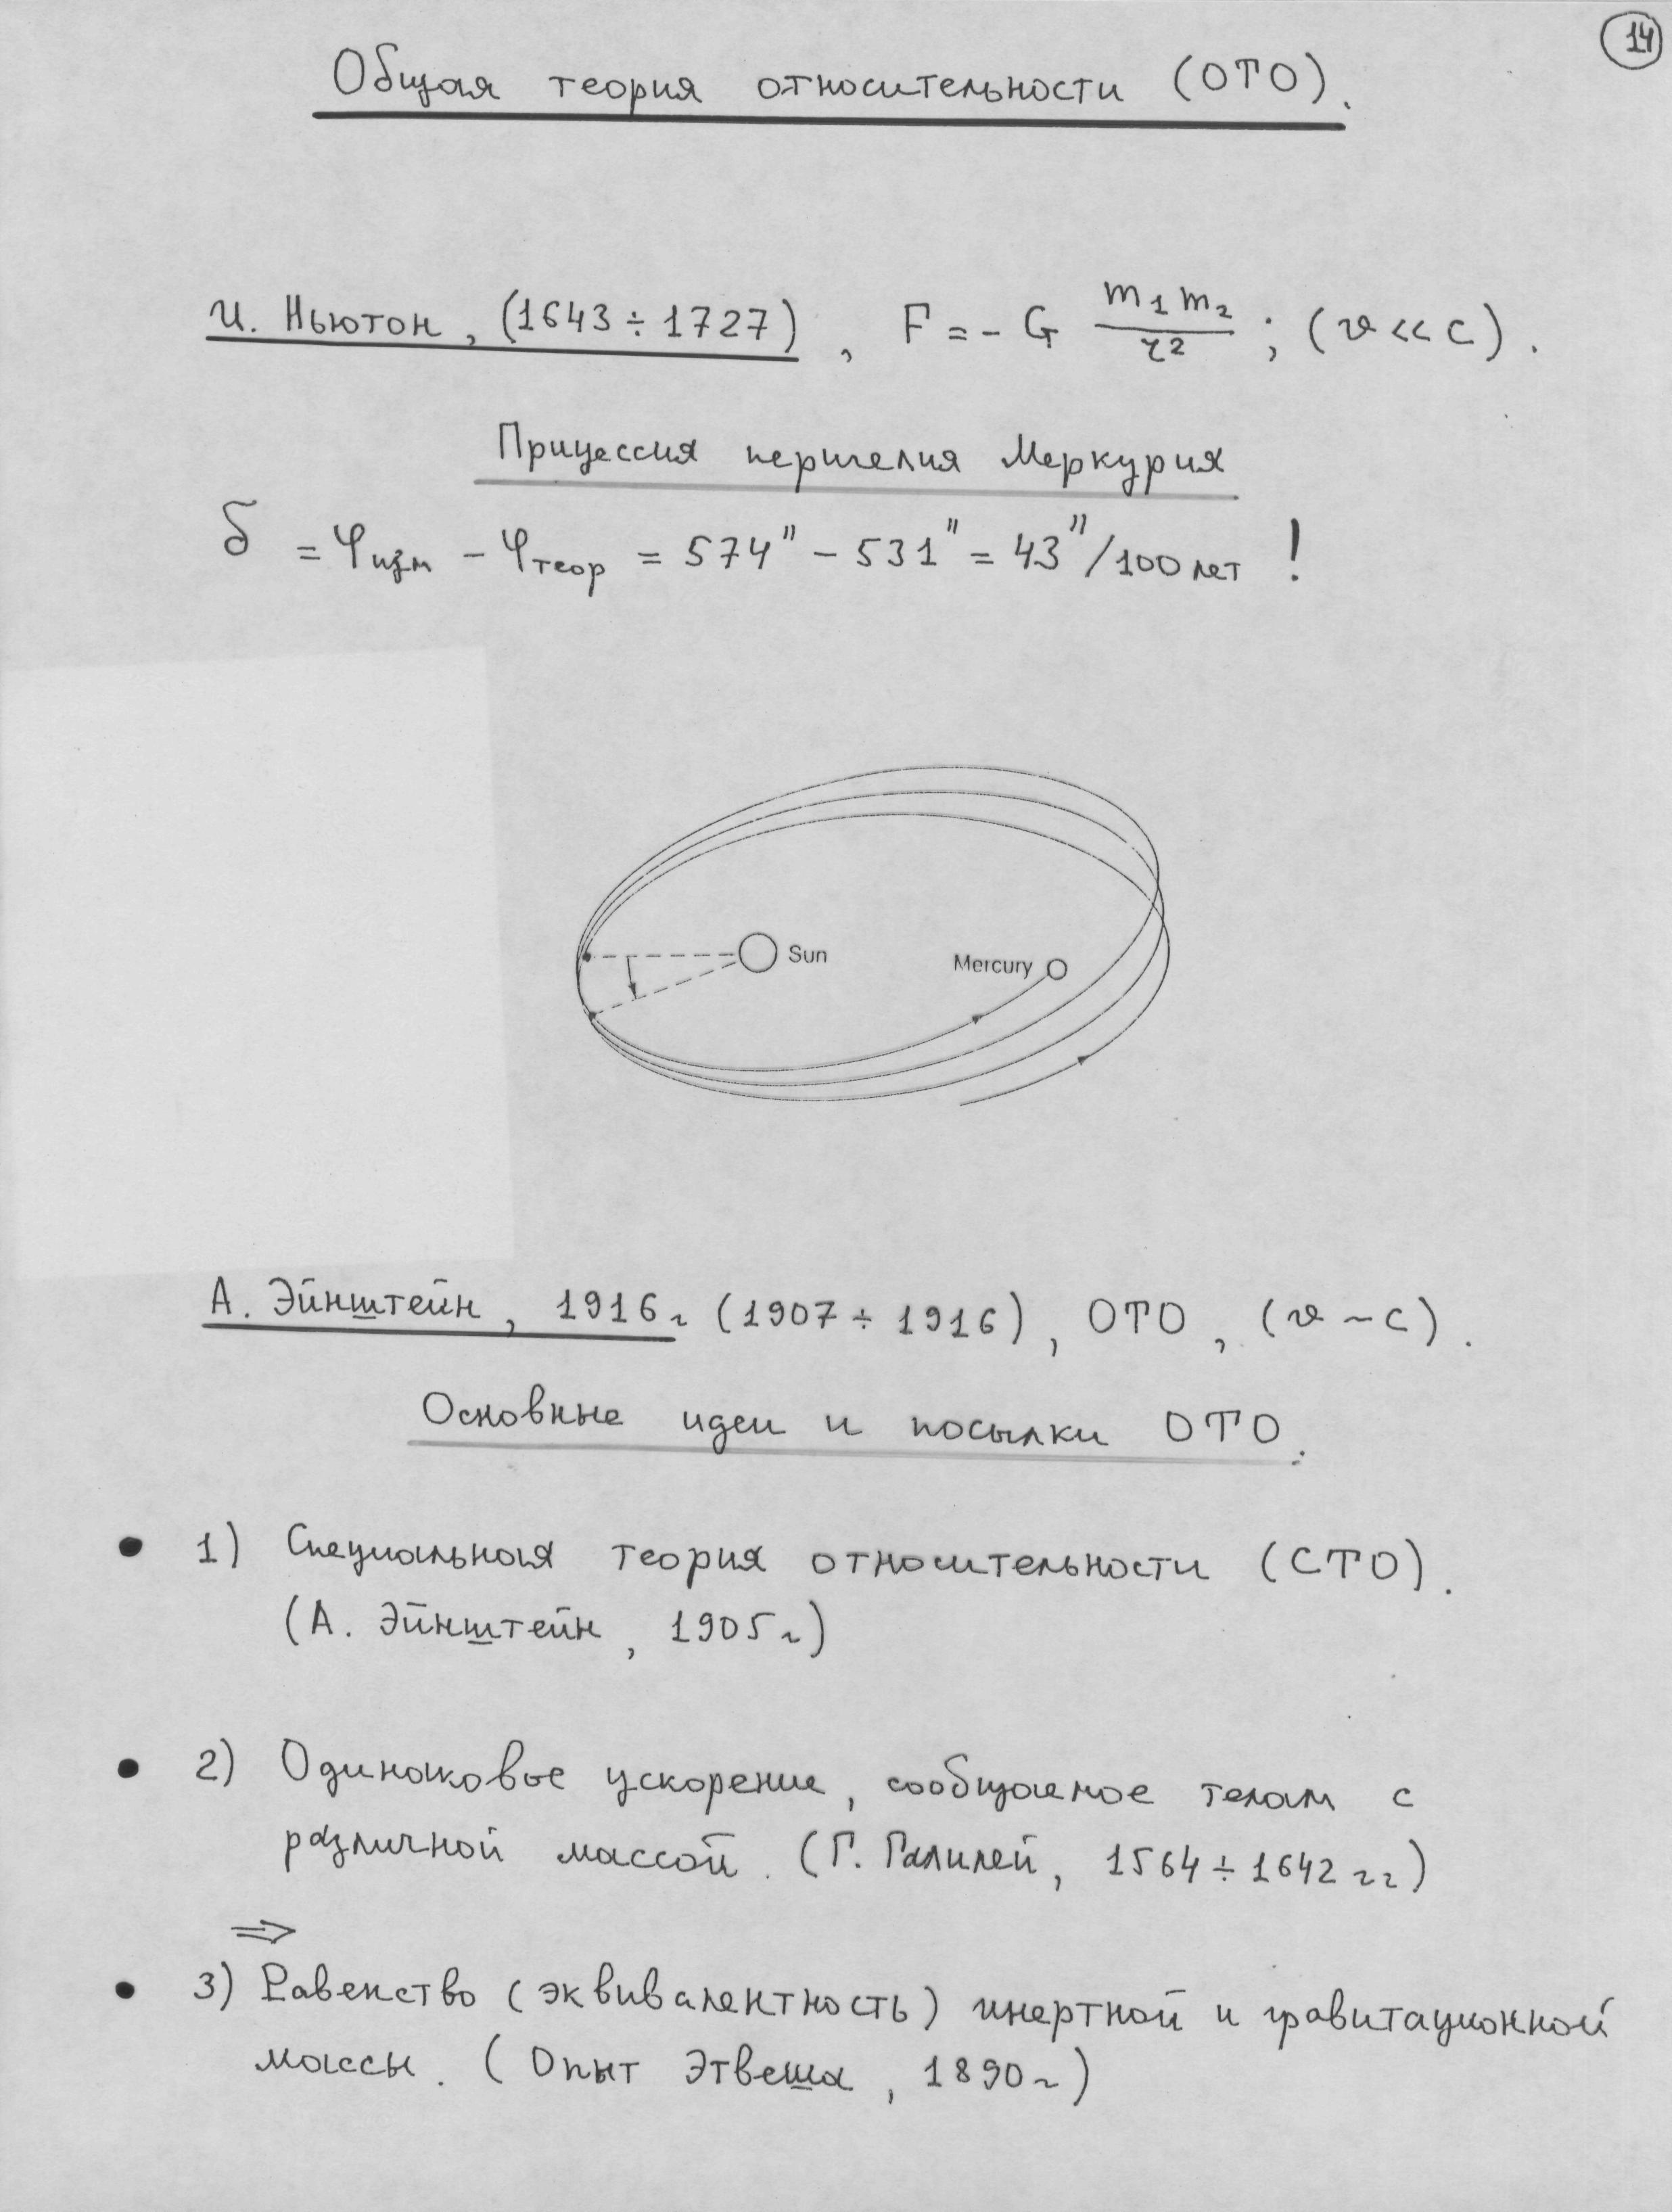 14
Общая теория относительности (ОТО).
И. Ньютон, (1643÷1727), F = - G m₁m₂/r²; (v << c).
Прицессия перигелия Меркурия
δ = φизм - φтеор = 574" - 531" = 43"/100 лет !
Sun
Mercury
А. Эйнштейн, 1916г (1907÷1916), ОТО, (v ~ c).
Основные идеи и посылки ОТО:
• 1) Специальная теория относительности (СТО).
(А. Эйнштейн, 1905г)
• 2) Одинаковое ускорение, сообщаемое телам с
различной массой. (Г. Галилей, 1564÷1642 гг)
⇒
• 3) Равенство (эквивалентность) инертной и гравитационной
массы. (Опыт Этвеша, 1890г)